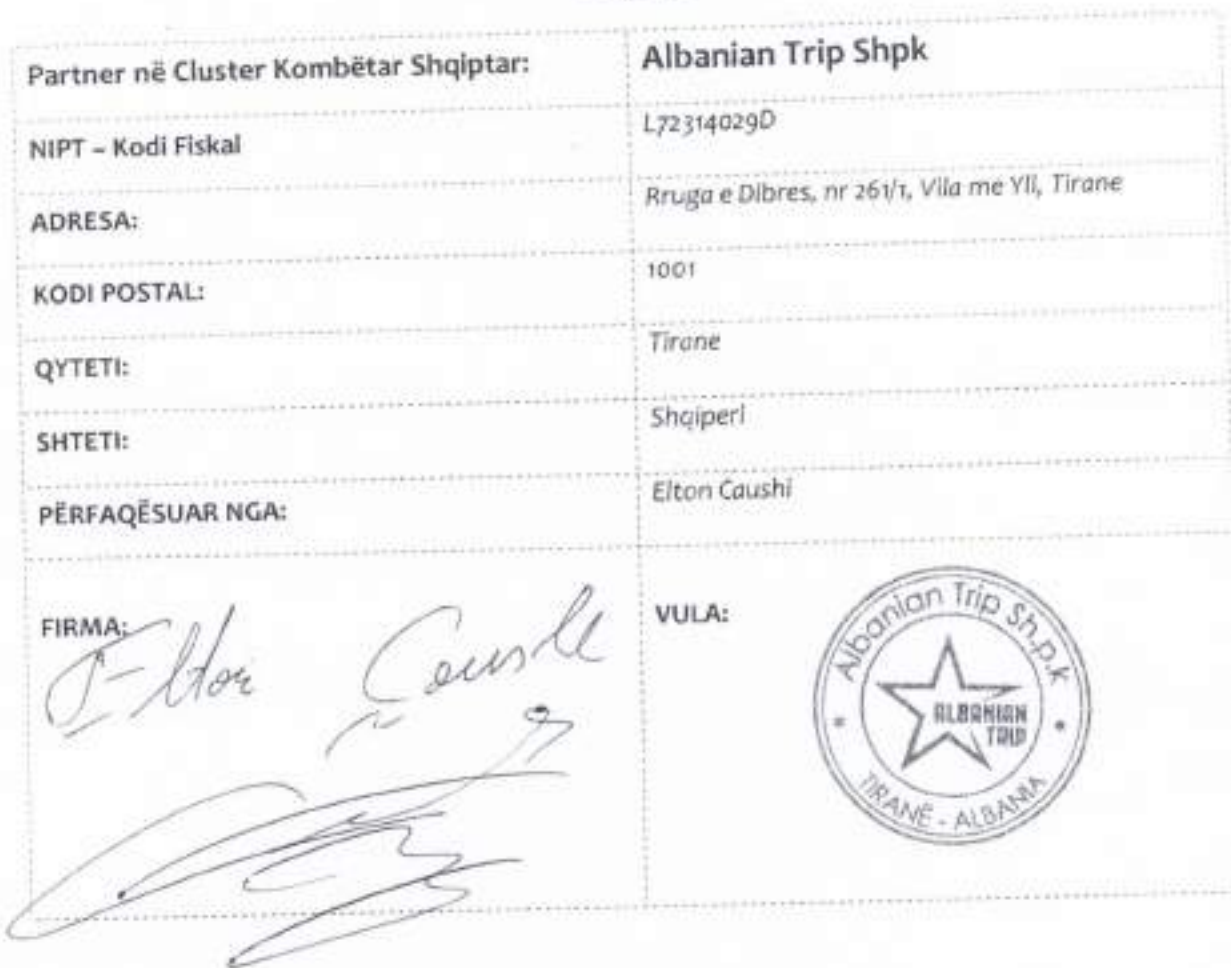 Partner në Cluster Kombëtar Shqiptar: Albanian Trip Shpk
NIPT – Kodi Fiskal L72314029D
ADRESA: Rruga e Dibres, nr 261/1, Vila me Yll, Tirane
KODI POSTAL: 1001
QYTETI: Tirane
SHTETI: Shqiperi
PËRFAQËSUAR NGA: Elton Caushi
FIRMA: VULA:
Elton Caushi
Albanian Trip Sh.p.k
ALBANIAN
TRIP
TIRANË - ALBANIA